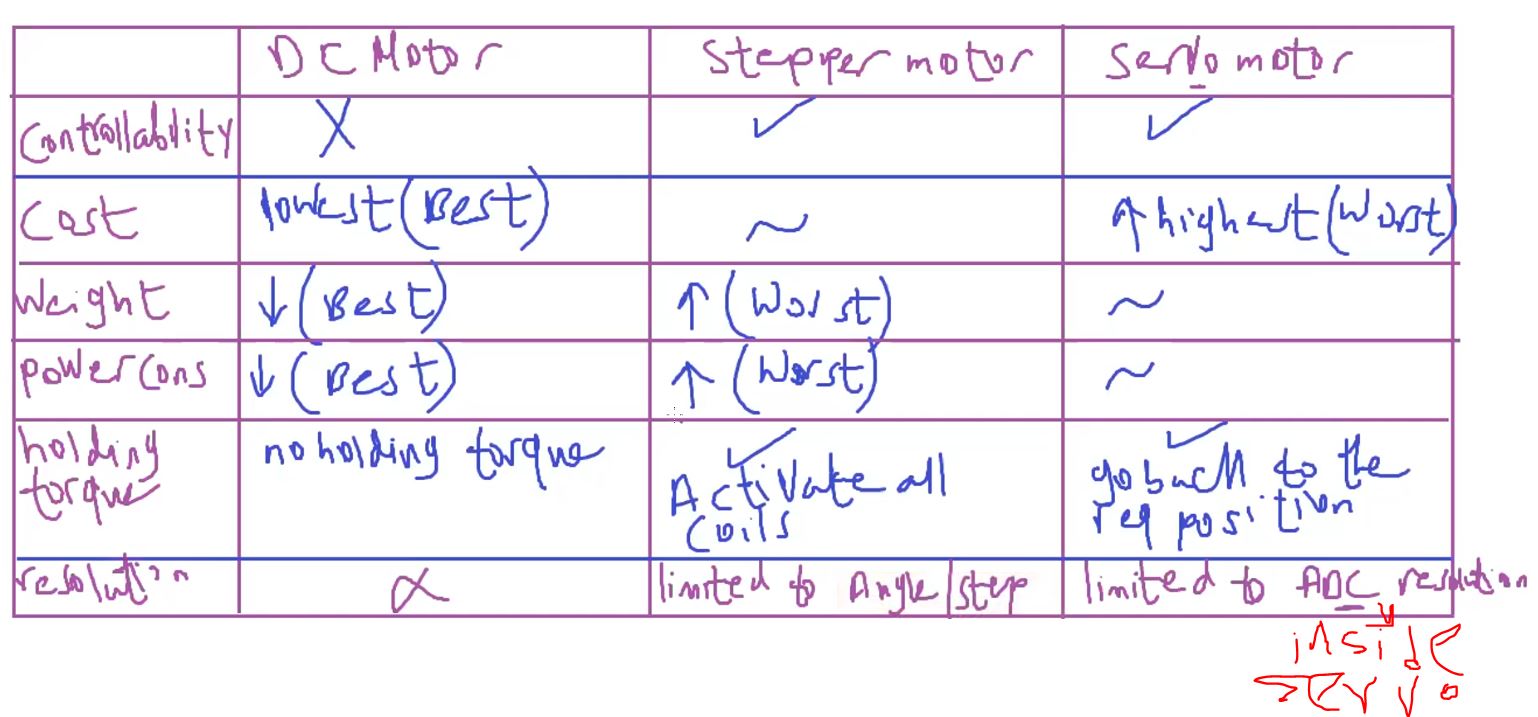 DC Motor Stepper motor Servo motor
Controllability X ✓ ✓
Cost lowest (Best) ~ ↑ highest (Worst)
Weight ↓ (Best) ↑ (Worst) ~
power Cons ↓ (Best) ↑ (Worst) ~
holding no holding torque ✓ ✓
torque Activate all go back to the
coils req position
resolution ∝ limited to Angle/step limited to ADC resolution
inside
servo